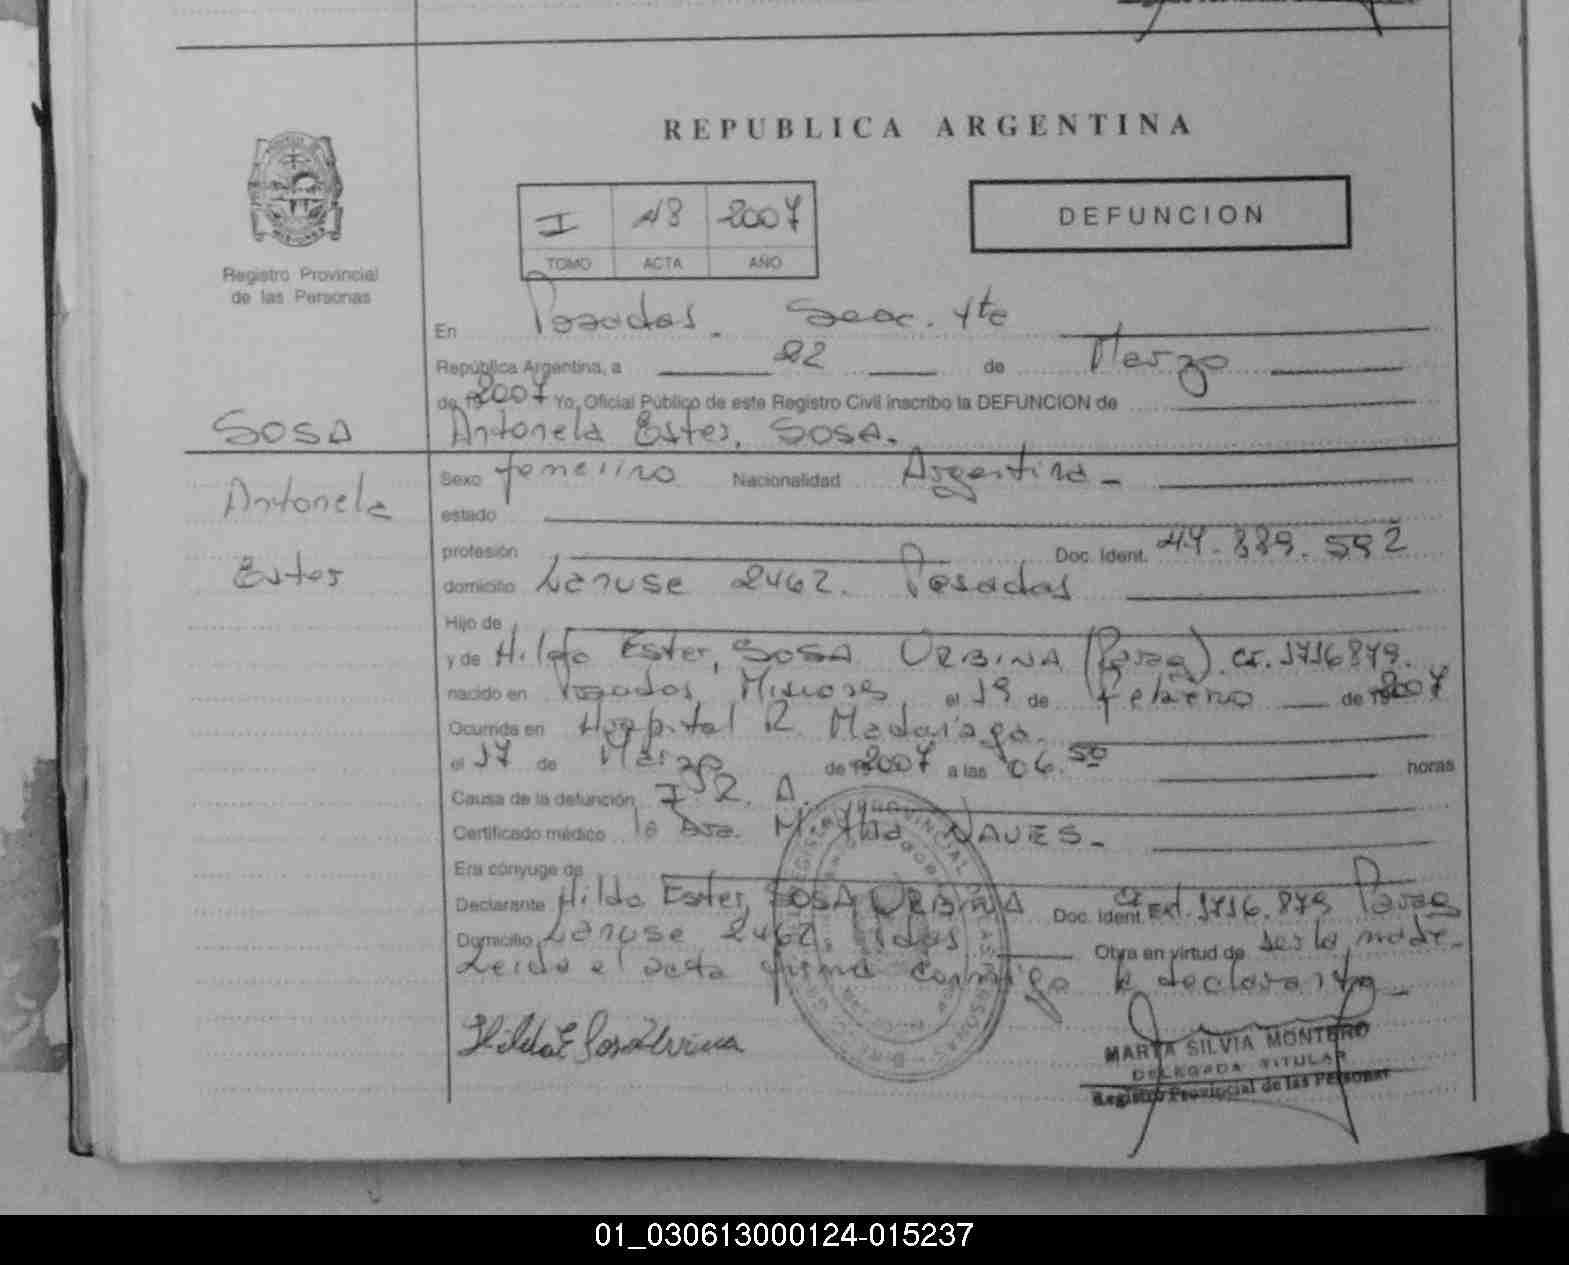 REPUBLICA ARGENTINA
Registro Provincial
de las Personas
I 18 2007
TOMO ACTA AÑO
DEFUNCION
En Posadas. Secc. 4ta
República Argentina, a 22 de Marzo
de 2007 Yo, Oficial Público de este Registro Civil inscribo la DEFUNCION de
SOSA
Antonela Ester, SOSA.
Antonela
Ester
Sexo femenino Nacionalidad Argentina
estado
profesión Doc. Ident.
domicilio Laruse 2462. Posadas
Hijo de
y de Hilda Ester, SOSA URBINA CI. 1716879.
nacido en Posadas, Misiones el 19 de Febrero de 2007
Ocurrida en Hospital R. Madariaga.
el 17 de Marzo de 2007 a las 06.50 horas
Causa de la defunción
Certificado médico la Dra. NAVES.
Era cónyuge de
Declarante Hilda Ester, SOSA URBINA Doc. Ident. 1716.879
Domicilio Laruse 2462, Pdas Obra en virtud de ser la madre.
Leida el acta firma conmigo la declarante
MARTA SILVIA MONTERO
DELEGADA TITULAR
Registro Provincial de las Personas
01_030613000124-015237